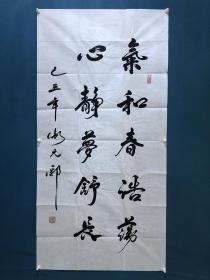 氣和春浩蕩
心靜夢舒長
己丑年